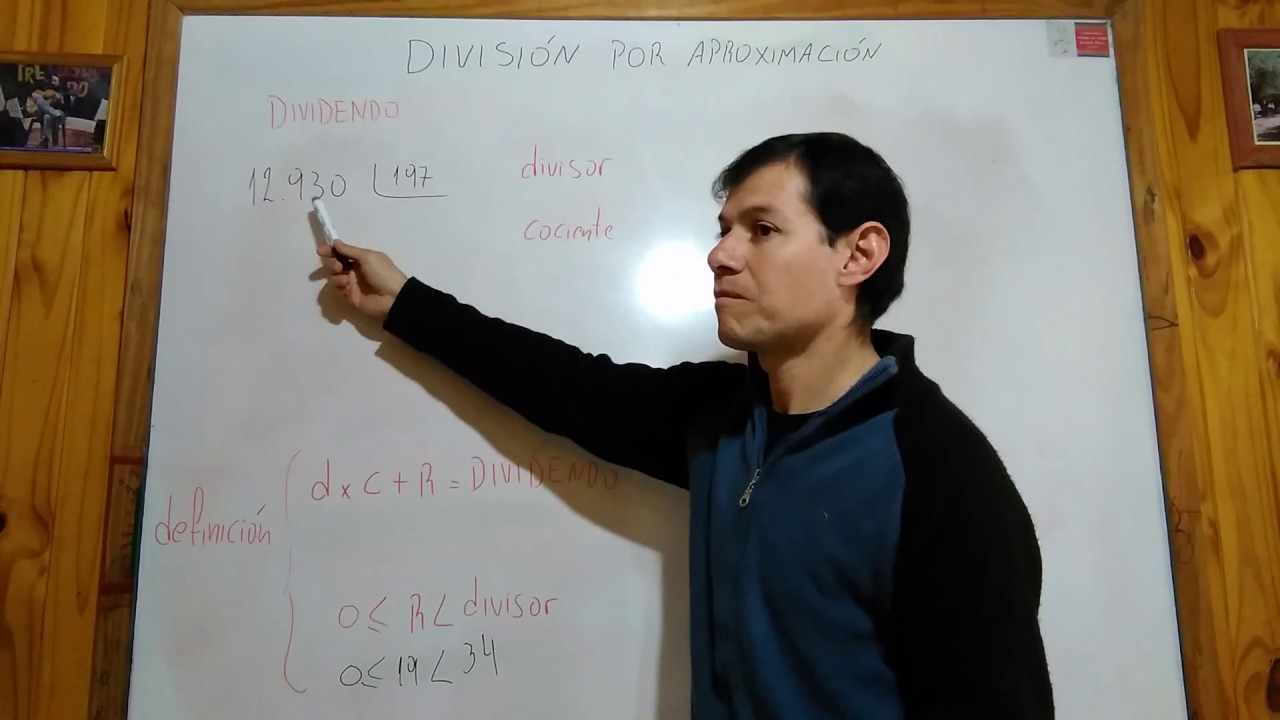 DIVISIÓN POR APROXIMACIÓN
DIVIDENDO
12.930 197
divisor
cociente
definición
d x C + R = DIVIDENDO
0 ≤ R < divisor
0 ≤ 19 < 34